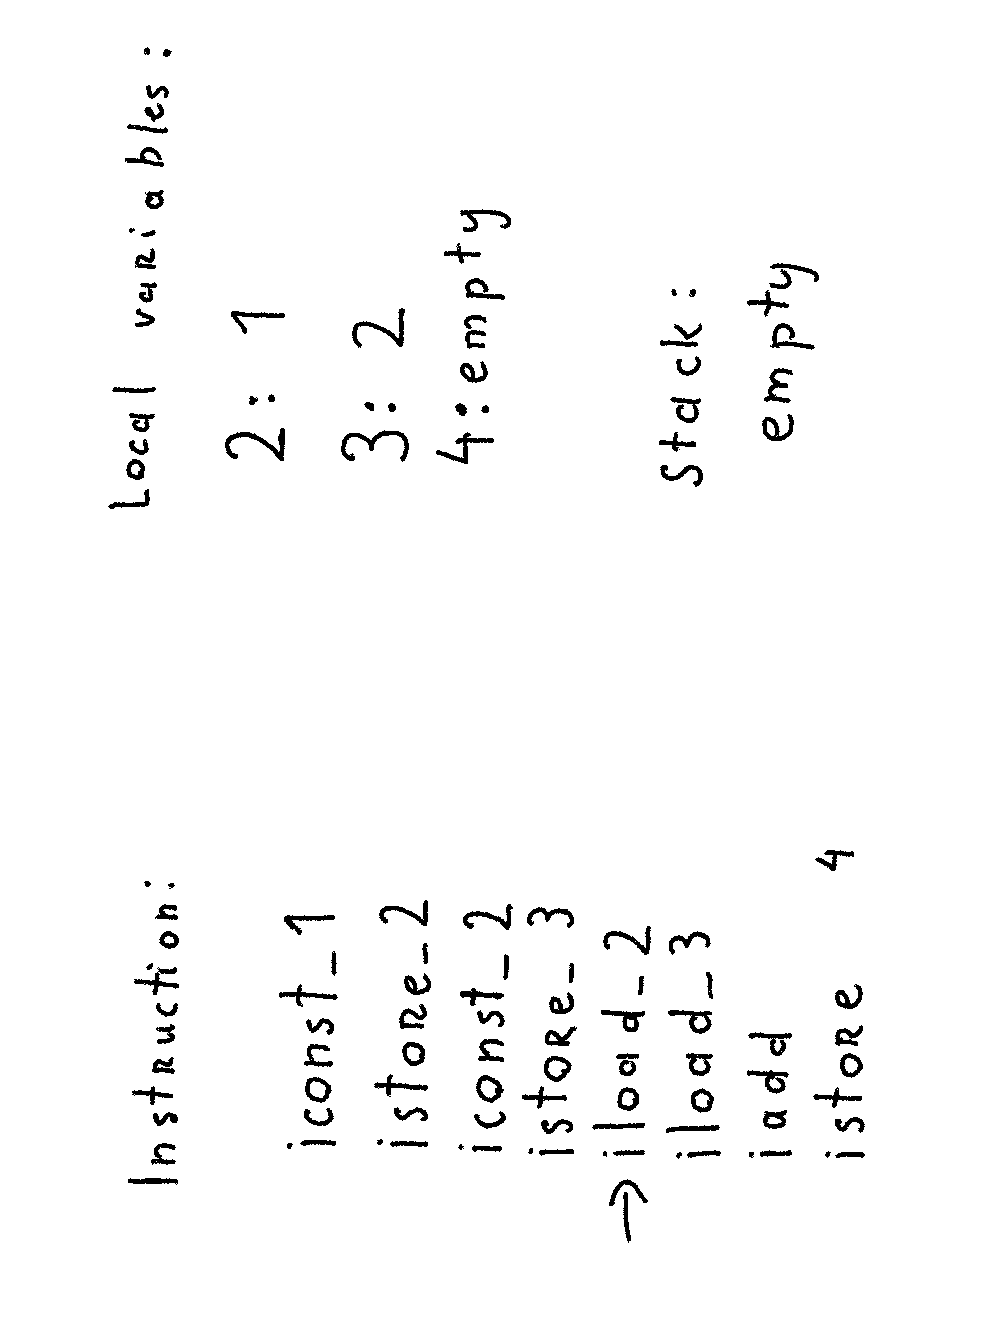 Instruction:
iconst_1
istore_2
iconst_2
istore_3
→iload_2
iload_3
iadd
istore 4
Local variables:
2: 1
3: 2
4: empty
Stack:
empty